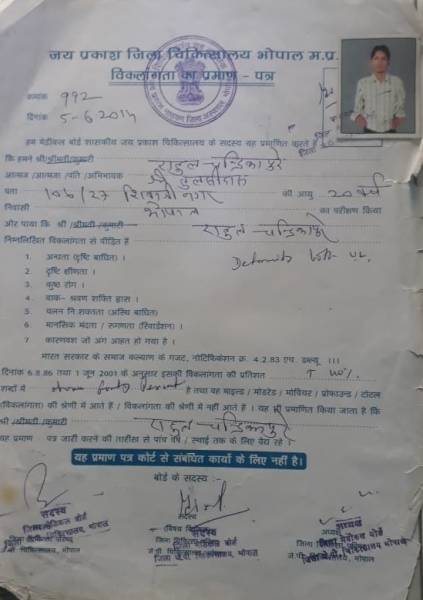 जय प्रकाश जिला चिकित्सालय भोपाल म.प्र.
विकलांगता का प्रमाण - पत्र
क्रमांक 992
दिनांक 5-6-2014
हम मेडीकल बोर्ड शासकीय जय प्रकाश चिकित्सालय के सदस्य यह प्रमाणित करते है
कि हमने श्री/श्रीमती/कुमारी राहुल चन्द्रिकापुरे
आत्मज /आत्मजा /पति /अभिभावक श्री तुलसीराम
पता 106/27 शिवाजी नगर की आयु 20 वर्ष
निवासी भोपाल का परीक्षण किया
और पाया कि श्री /श्रीमती /कुमारी राहुल चन्द्रिकापुरे
निम्नलिखित विकलांगता से पीड़ित है
1. अन्धता (दृष्टि बाधित) ।
2. दृष्टि क्षीणता ।
3. कुष्ठ रोग ।
4. वाक- श्रवण शक्ति ह्रास ।
5. चलन नि:शक्तता (अस्थि बाधित)
6. मानसिक मंदता / रुग्णता (रिटार्डेशन) ।
7. कारणवश जो अंग आहत हो गया है ।
भारत सरकार के समाज कल्याण के गजट, नोटिफिकेशन क्र. 4.2.83 एच. डब्ल्यू. ।।।
दिनांक 6.8.86 तथा 1 जून 2001 के अनुसार इसकी विकलांगता की प्रतिशत 40%
शब्दों में forty Percent है तथा वह माइल्ड / मोडरेड / सीवियर / प्रोफाउन्ड / टोटल
(विकलांगता की श्रेणी में आते हैं / विकलांगता की श्रेणी में नहीं आते हैं । यह भी प्रमाणित किया जाता है कि
श्री /श्रीमती /कुमारी राहुल चन्द्रिकापुरे
यह प्रमाण पत्र जारी करने की तारीख से पांच वर्ष / स्थाई तक के लिए वैध रहे ।
यह प्रमाण पत्र कोर्ट से संबंधित कार्यो के लिए नहीं है।
बोर्ड के सदस्य :-
सदस्य
जिला मेडिकल बोर्ड
जे.पी. चिकित्सालय, भोपाल
सदस्य
जिला मेडिकल बोर्ड
जिला जे.पी. चिकित्सालय, भोपाल
अध्यक्ष
जिला मेडीकल बोर्ड
जे.पी. चिकित्सालय, भोपाल